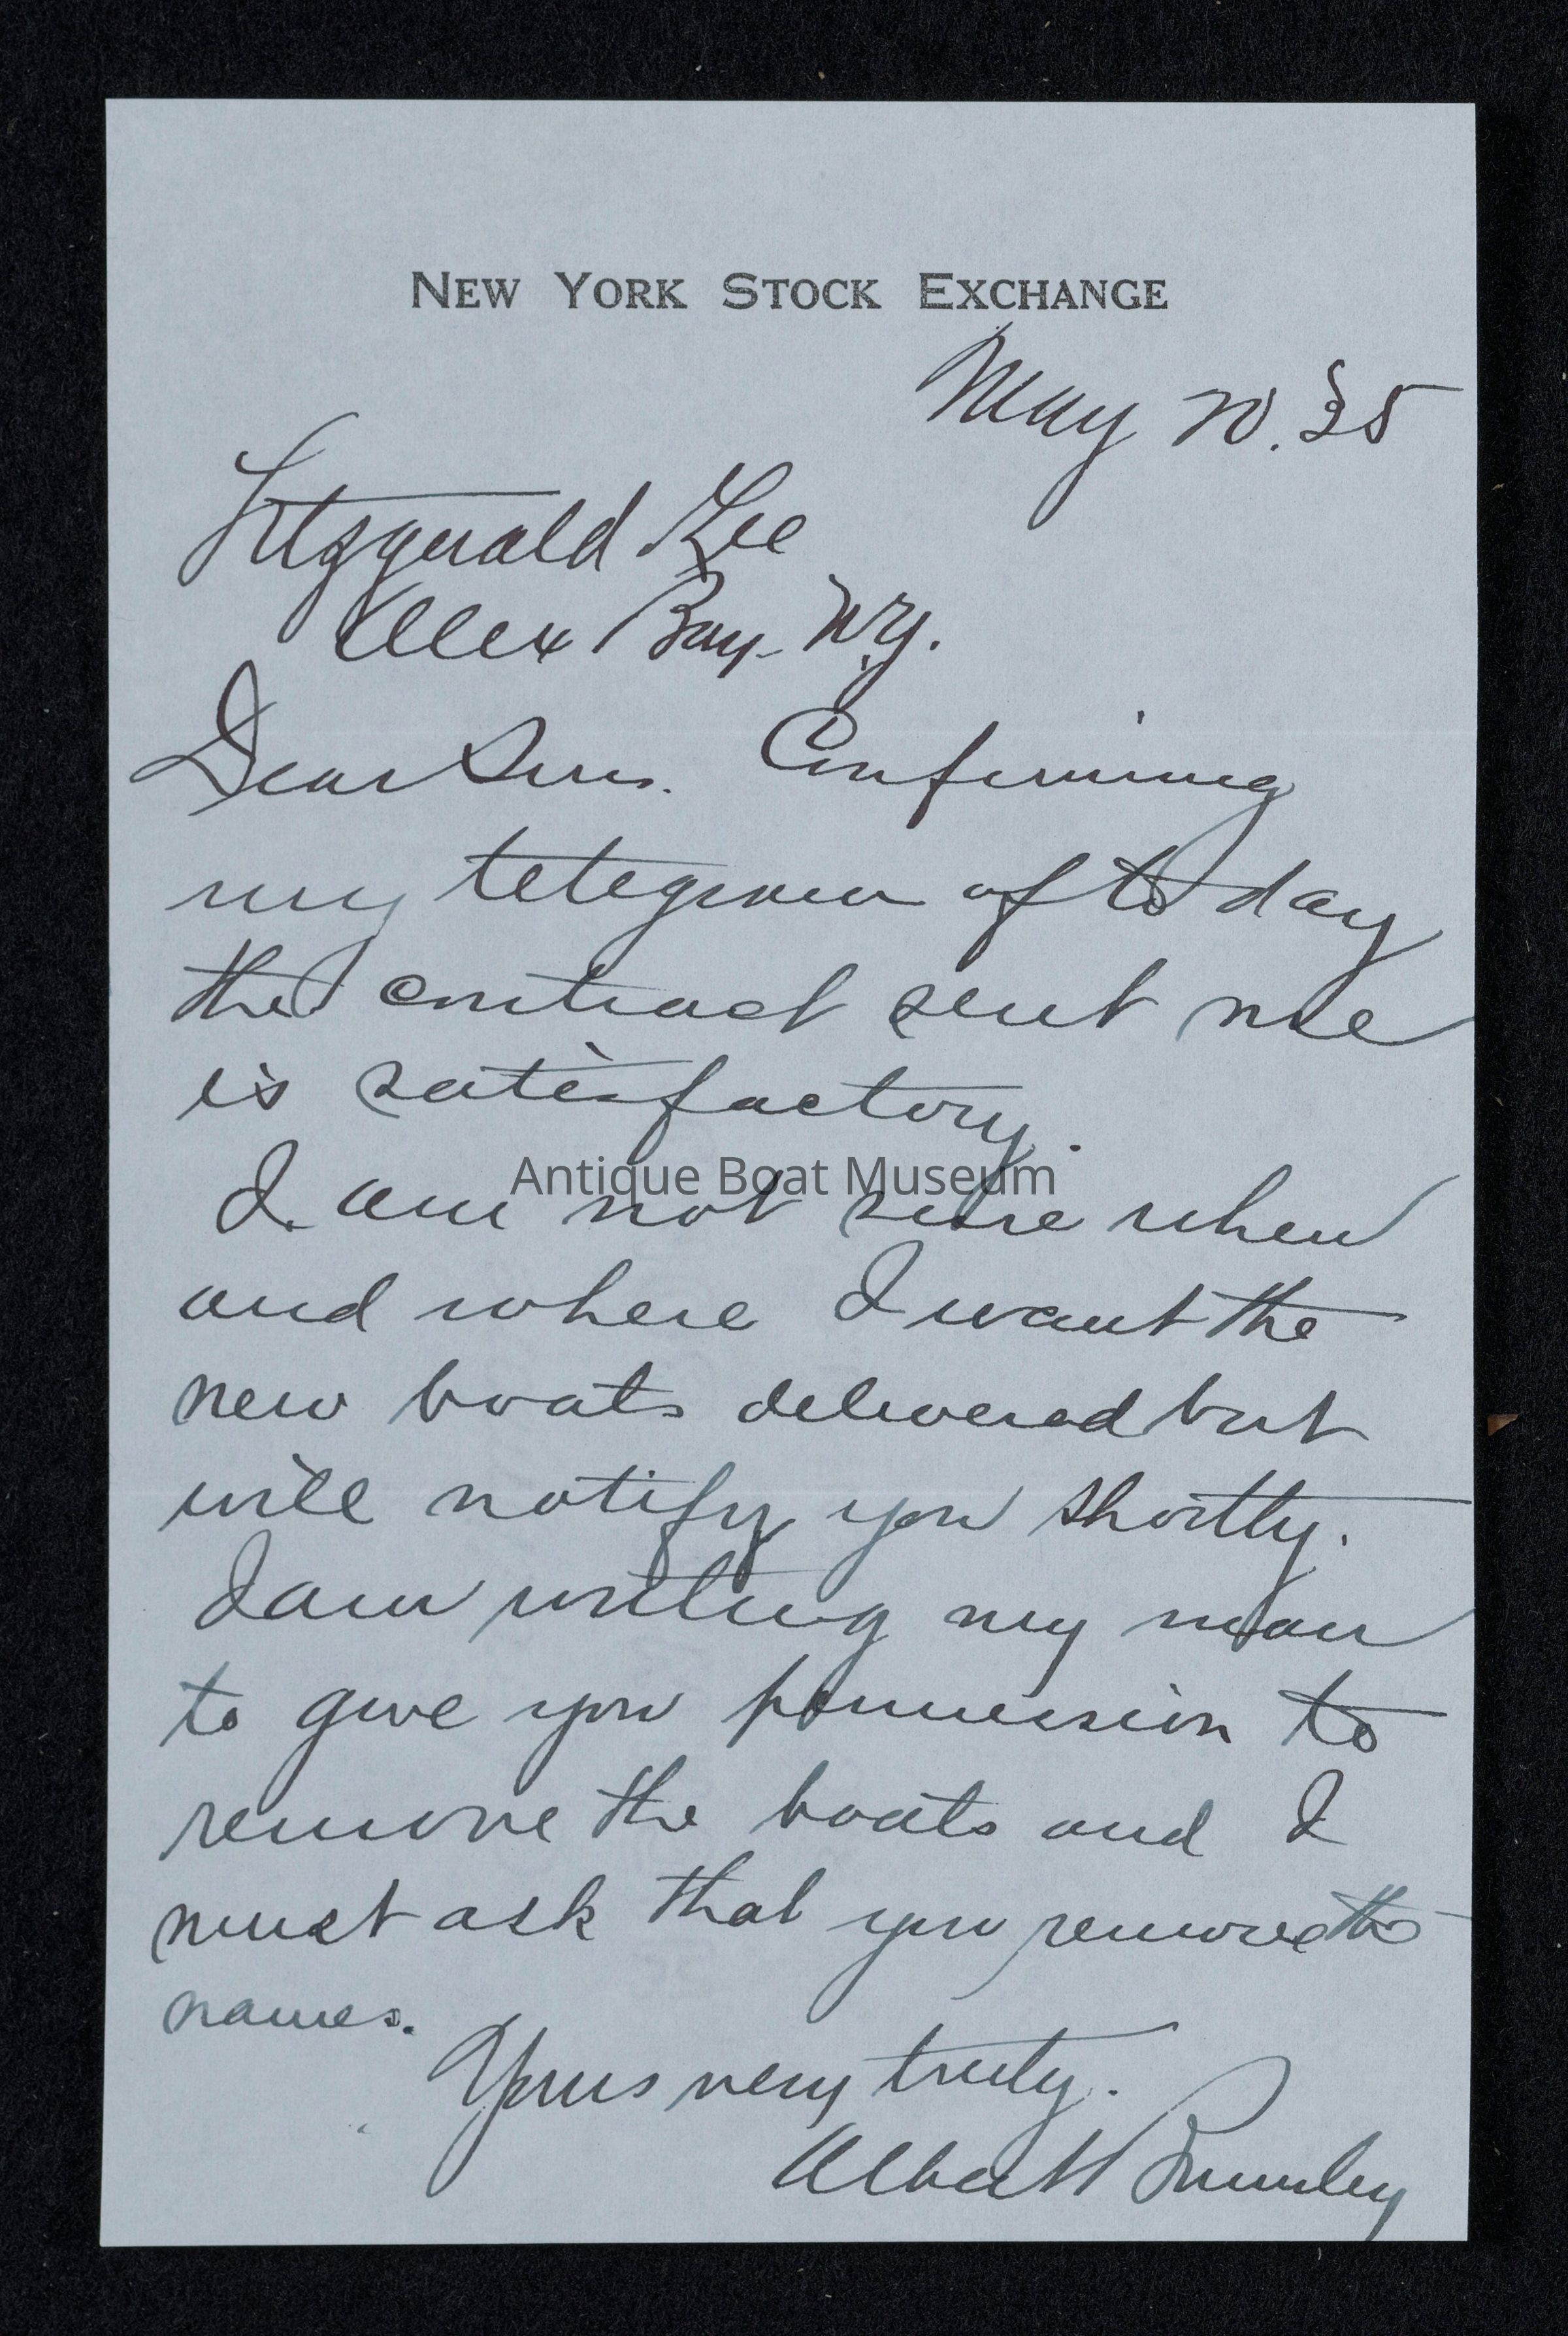 NEW YORK STOCK EXCHANGE
May 20. 35
Fitzgerald Lee
Alex Bay N.Y.
Dear Sirs. Confirming
my telegram of to day
the contract sent me
is satisfactory.
Antique Boat Museum
I am not sure when
and where I want the
new boats delivered but
will notify you shortly.
I am writing my man
to give you permission to
remove the boats and I
must ask that you remove the
names.
Yours very truly.
Albert